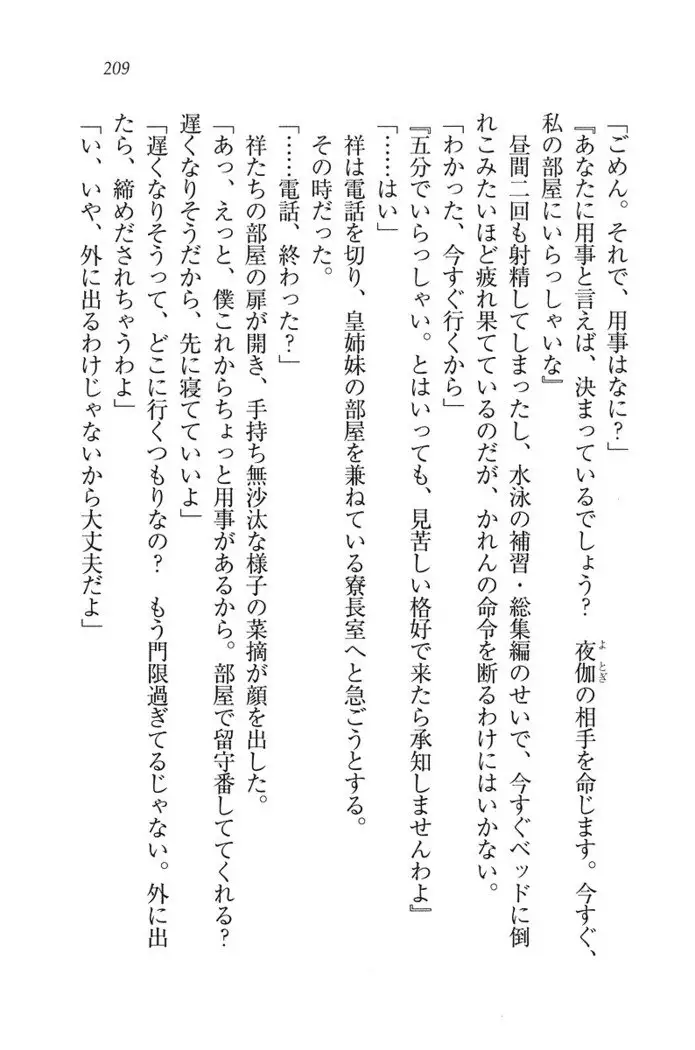 209
「ごめん。それで、用事はなに？」
『あなたに用事と言えば、決まっているでしょう？　夜伽の相手を命じます。今すぐ、
よとぎ
私の部屋にいらっしゃいな』
昼間二回も射精してしまったし、水泳の補習・総集編のせいで、今すぐベッドに倒
れこみたいほど疲れ果てているのだが、かれんの命令を断るわけにはいかない。
「わかった、今すぐ行くから」
『五分でいらっしゃい。とはいっても、見苦しい格好で来たら承知しませんわよ』
「……はい」
祥は電話を切り、皇姉妹の部屋を兼ねている寮長室へと急ごうとする。
その時だった。
「……電話、終わった？」
祥たちの部屋の扉が開き、手持ち無沙汰な様子の菜摘が顔を出した。
「あっ、えっと、僕これからちょっと用事があるから。部屋で留守番しててくれる？
遅くなりそうだから、先に寝てていいよ」
「遅くなりそうって、どこに行くつもりなの？　もう門限過ぎてるじゃない。外に出
たら、締めだされちゃうわよ」
「い、いや、外に出るわけじゃないから大丈夫だよ」